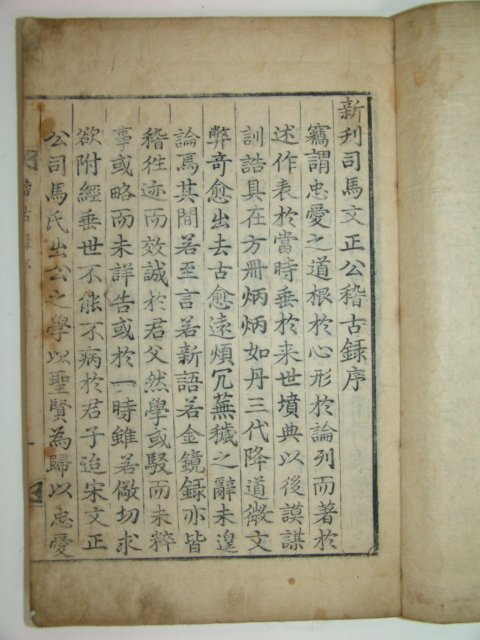 新刊司馬文正公稽古録序
竊謂忠愛之道根於心形於論列而著於
述作表於當時垂於来世墳典以後謨謀
訓誥具在方冊炳炳如丹三代降道微文
弊奇愈出去古愈遠煩冗蕪穢之辭未遑
論焉其間若至言若新語若金鏡録亦皆
稽往迹而效誠於君父然學或駁而未粹
事或略而未詳告或於一時雖若儆切求
欲附經垂世不能不病於君子迨宋文正
公司馬氏出公之學以聖賢為歸以忠愛
稽古録序